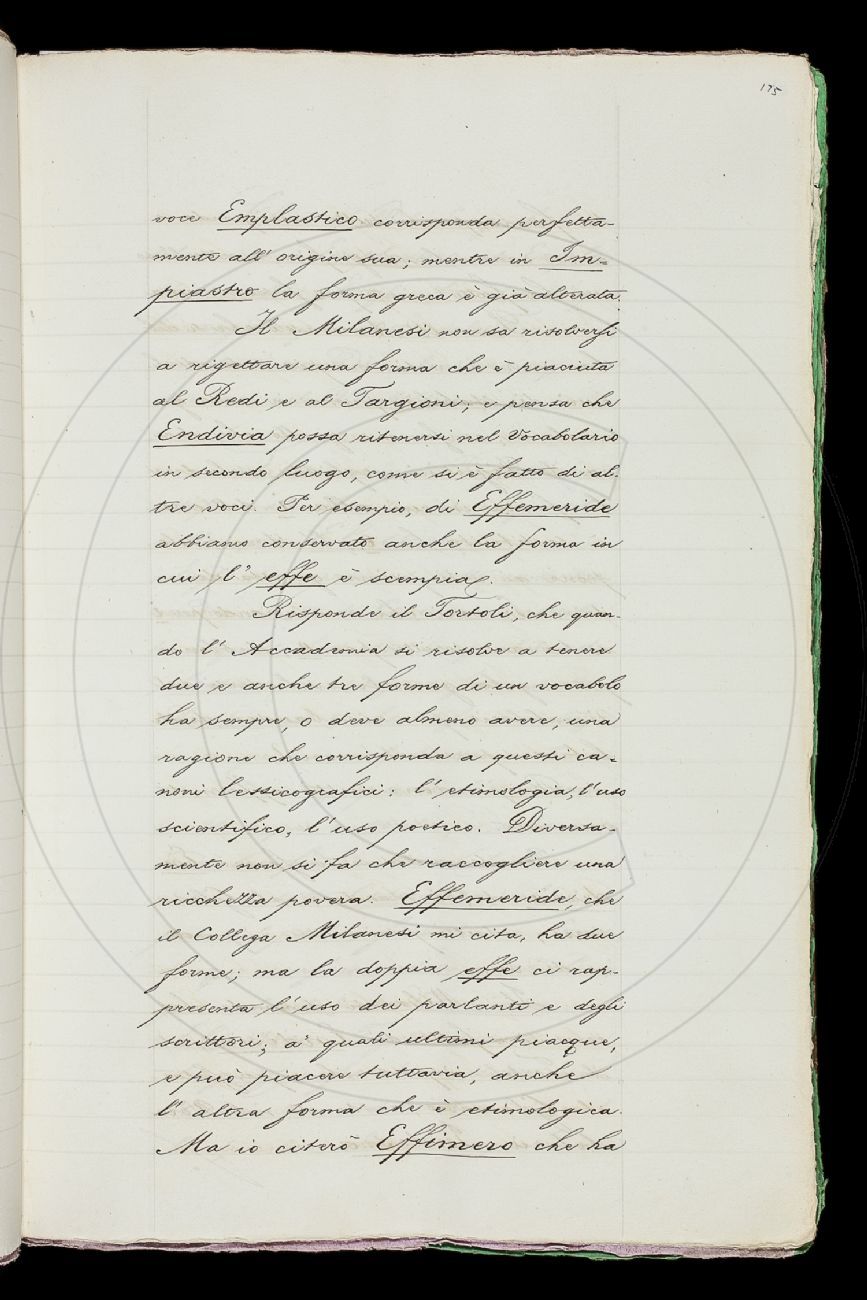 175
voce Emplastico corrisponda perfetta-
mente all' origine sua; mentre in Im-
piastro la forma greca è già alterata.
Il Milanesi non sa risolversi
a rigettare una forma che è piaciuta
al Redi e al Targioni; e pensa che
Endivia possa ritenersi nel Vocabolario
in secondo luogo, come si è fatto di al-
tre voci. Per esempio, di Effemeride
abbiamo conservato anche la forma in
cui l' effe è scempia.
Risponde il Tortoli, che quan-
do l' Accademia si risolve a tenere
due e anche tre forme di un vocabolo
ha sempre, o deve almeno avere, una
ragione che corrisponda a questi ca-
noni lessicografici: l' etimologia, l' uso
scientifico, l' uso poetico. Diversa-
mente non si fa che raccogliere una
ricchezza povera. Effemeride, che
il Collega Milanesi mi cita, ha due
forme; ma la doppia effe ci rap-
presenta l' uso dei parlanti e degli
scrittori; a' quali ultimi piacque,
e può piacere tuttavia, anche
l' altra forma che è etimologica.
Ma io citerò Effimero che ha